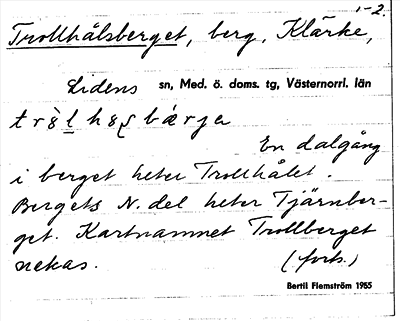 1-2.
Trollhålsberget, berg, Klärke,
Lidens sn, Med. ö. doms. tg, Västernorrl. län
En dalgång
i berget heter Trollhålet.
Bergets N. del heter Tjärnber-
get. Kartnamnet Trollberget
nekas. (forts.)
Bertil Flemström 1955